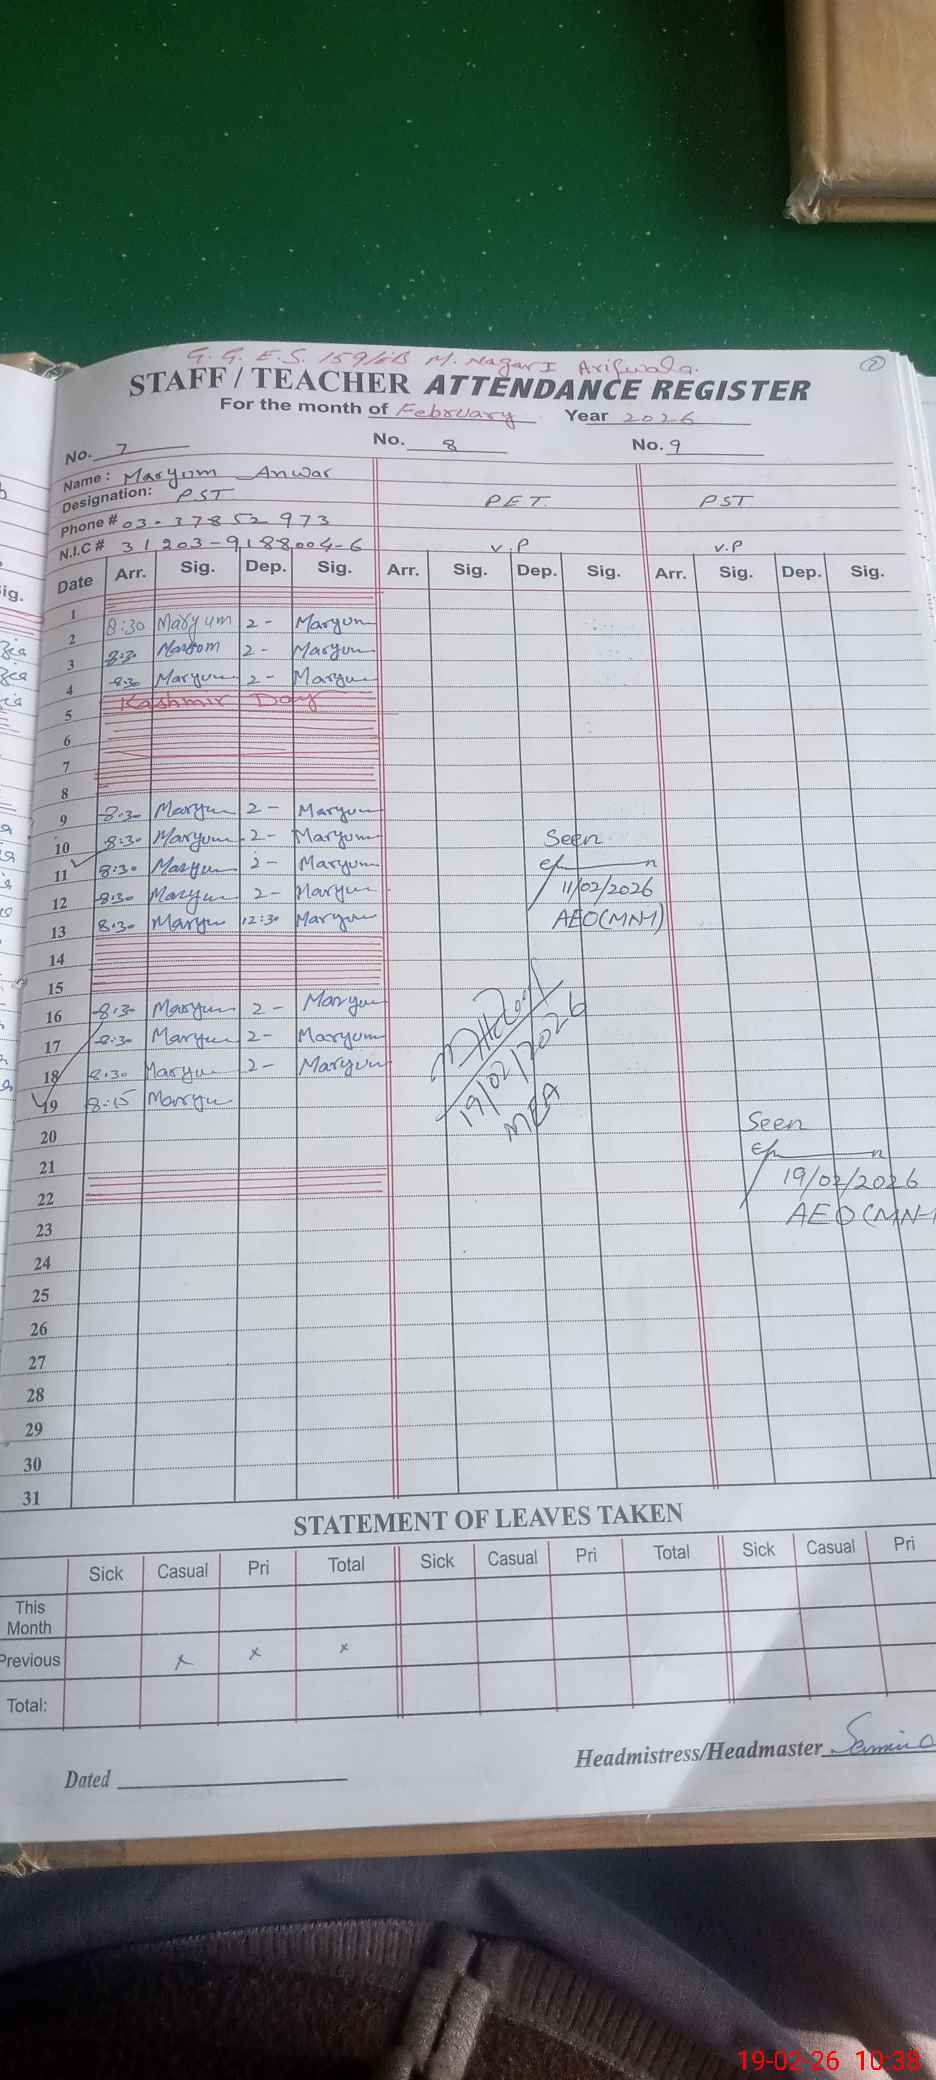 G. G. E. S. 159/EB M. Nagar I Arifwala.
2
STAFF / TEACHER ATTENDANCE REGISTER
For the month of February Year 2026
No. 7 No. 8 No. 9
Name: Maryum Anwar
Designation: PST PET. PST
Phone # 03-37852973
N.I.C # 31203-9188004-6 V.P V.P
Date Arr. Sig. Dep. Sig. Arr. Sig. Dep. Sig. Arr. Sig. Dep. Sig.
1
2 8:30 Maryum 2- Maryum
3 8:30 Maryum 2- Maryum
4 8:30 Maryum 2- Maryum
5 Kashmir Day
6
7
8
9 8:30 Maryum 2- Maryum
10 8:30 Maryum 2- Maryum Seen
11 8:30 Maryum 2- Maryum
12 8:30 Maryum 2- Maryum 11/02/2026
13 8:30 Maryum 12:30 Maryum AEO(MN-1)
14
15
16 8:30 Maryum 2- Maryum
17 8:30 Maryum 2- Maryum
18 8:30 Maryum 2- Maryum
19/02/2026
MEA
19 8:15 Maryum
20 Seen
21
22 19/02/2026
23 AEO(MN-1
24
25
26
27
28
29
30
31
STATEMENT OF LEAVES TAKEN
Sick Casual Pri Total Sick Casual Pri Total Sick Casual Pri
This Month
Previous x x x
Total:
Dated Headmistress/Headmaster
19-02-26 10:38